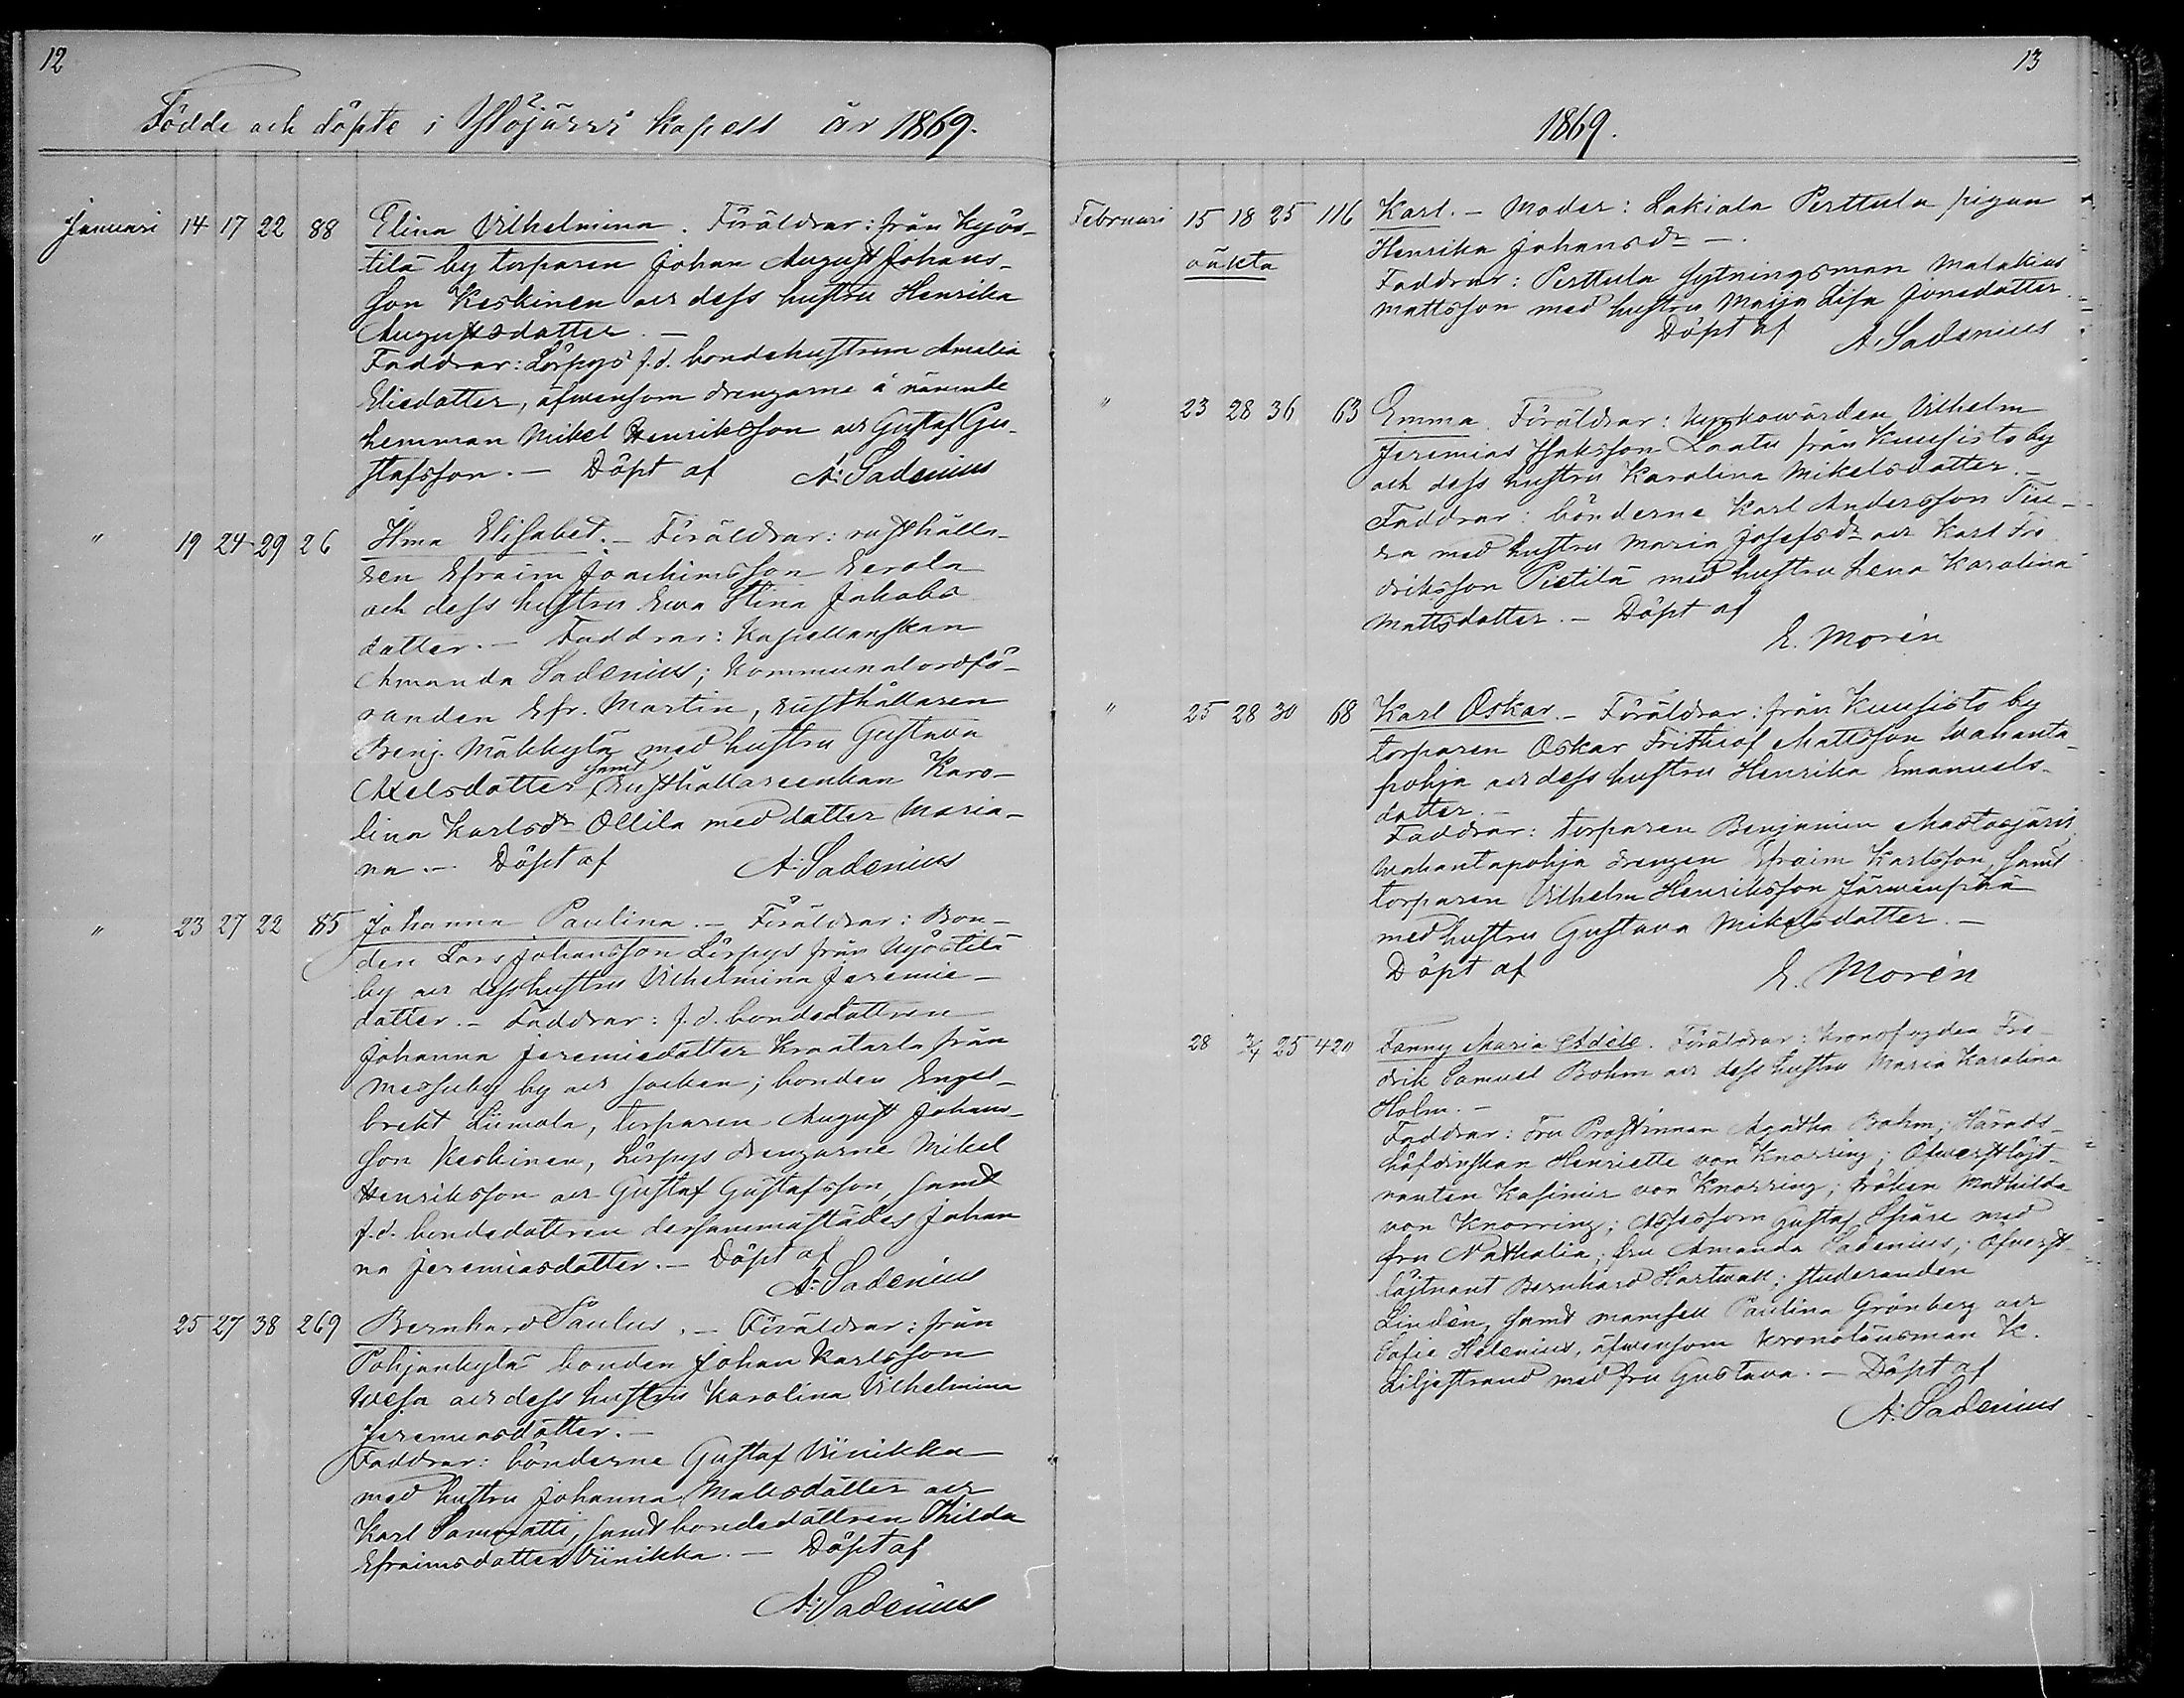 12
Födde och döpte i Ylöjärvi kapell år 1869.
Januari 14 17 22 88 Elina Vilhelmina. Föräldrar: från Kyös-
tilä by torparen Johan August Johans-
son Keskinen och dess hustru Henrika
Augustsdatter. -
Faddrar: Lörpys f.d. bondehustrun Amalia
Eliedatter, äfvensom drengarne å nämnde
hemman Mikel Henriksson och Gustaf Gu-
stafsson. - Döpt af A. Sadenius
" 19 24 29 26 Ilma Elisabet. - Föräldrar: rusthålla-
ren Efraim Joachimsson Eerola
och dess hustru Ewa Stina Jakobs
datter. - Faddrar: Kapellanskan
Amanda Sadenius; Kommunalordfö-
randen Efr. Martin, rusthållaren
Benj. Mäkkylä med hustru Gustava
Axelsdatter samt rusthållareenkan Karo-
lina Karlsdr Ollila med datter Maria-
na. - Döpt af A. Sadenius
" 23 27 22 85 Johanna Paulina. - Föräldrar: Bon-
den Lars Johansson Lörpys från Kyöstilä
by och dess hustru Vilhelmina Jeremie-
datter. - Faddrar: f.d. bondedattren
Johanna Jeremiedatter Kraatarla från
Messuby by och socken; bonden Engel-
brekt Liimola, torparen August Johans-
son Keskinen, Lörpys drengarne Mikel
Henriksson och Gustaf Gustafsson, samt
f.d. bondedattren dersammastädes Johan
na Jeremiasdatter. - Döpt af
A. Sadenius
25 27 38 269 Bernhard Paulus. - Föräldrar: från
Pohjankylä bonden Johan Karlsson
Wesa och dess hustru Karolina Vilhelmina
Jeremiasdatter. -
Faddrar: bönderne Gustaf Viinikka
med hustru Johanna Mattsdatter och
Karl Sammatti, samt bondedattren Thilda
Efraimsdatter Viinikka. - Döpt af
A. Sadenius
13
1869.
Februari 15 18 25 116 Karl. - Moder: Lakiala Perttula pigan
oäkta Henrika Johansdr -.
Faddrar: Perttula sytningsman Malakias
Mattsson med hustru Maija Lisa Jonedatter
Döpt af A. Sadenius
" 23 28 36 63 Emma. Föräldrar: Kyrkowärden Vilhelm
Jeremias Isaksson Laatu från Kuusisto by
och dess hustru Karolina Mikelsdatter. -
Faddrar: bönderne Karl Andersson Tiu-
ra med hustru Maria Josefsdr och Karl Fre
driksson Pietilä med hustru Lena Karolina
Mattsdatter. - Döpt af
E. Morén
" 25 28 30 68 Karl Oskar. - Föräldrar: från Kuusisto by
torparen Oskar Frithiof Mattsson Wahanta-
pohja och dess hustru Henrika Emanuels-
datter. -
Faddrar: torparen Benjamin Mastosjärvi,
Wahantapohja drengen Efraim Karlsson, samt
torparen Vilhelm Henriksson Järvenpää
med hustru Gustava Mikelsdatter. -
Döpt af E. Morén
28 2/4 25 420 Fanny Maria Adéle. Föräldrar: Kronofogden Fre-
drik Samuel Bohm och dess hustru Maria Karolina
Holm. -
Faddrar: Fru Prostinnan Agatha Bohm; Härads-
höfdinskan Henriette von Knorring; Öfwerstlöjt-
nanten Kasimir von Knorring; fröken Mathilda
von Knorring; Assessorn Gustaf Spåre med
fru Nathalia; fru Amanda Sadenius; Öfverst-
löjtnant Bernhard Hartwall; studeranden
Lindén, samt mamsell Paulina Grönberg och
Sofie Helenius, äfwensom kronolänsman K.
Liljestrand med fru Gustava. - Döpt af
A. Sadenius